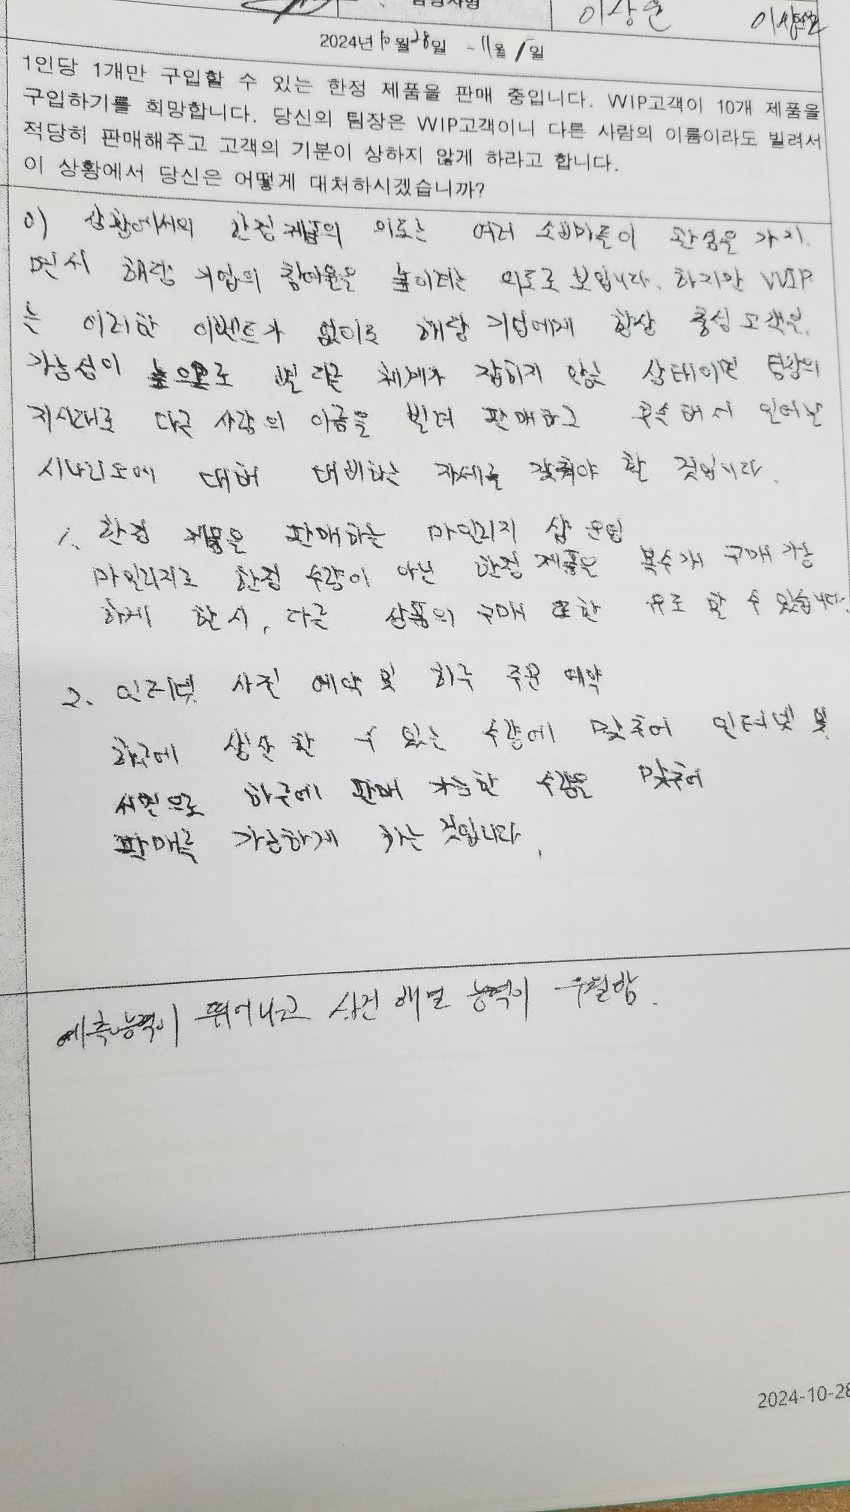 이상윤 이상윤
2024년 10월 28일 - 11월 1일
1인당 1개만 구입할 수 있는 한정 제품을 판매 중입니다. VVIP고객이 10개 제품을
구입하기를 희망합니다. 당신의 팀장은 VVIP고객이니 다른 사람의 이름이라도 빌려서
적당히 판매해주고 고객의 기분이 상하지 않게 하라고 합니다.
이 상황에서 당신은 어떻게 대처하시겠습니까?
이 상황에서의 한정 제품의 의도는 여러 소비자들이 관심을 가지
면서 해당 기업의 참여율을 높이려는 의도로 보입니다. 하지만 VVIP
는 이러한 이벤트가 없이도 해당 기업에게 항상 충성 고객일
가능성이 높으므로 별 다른 체계가 잡히지 않은 상태이면 팀장의
지시대로 다른 사람의 이름을 빌려 판매하고 후속해서 일어날
시나리오에 대해 대비하는 자세를 갖춰야 할 것입니다.
1. 한정 제품을 판매하는 마일리지 샵 운영
마일리지로 한정 수량이 아닌 한정 제품은 복수개 구매 가능
하게 할 시, 다른 상품의 구매 또한 유도 할 수 있습니다.
2. 인터넷 사전 예약 및 하루 주문 예약
하루에 생산 할 수 있는 수량에 맞추어 인터넷 및
서면으로 하루에 판매 가능한 수량을 맞추어
판매를 가능하게 하는 것입니다.
예측능력이 뛰어나고 사건 해결 능력이 우월함.
2024-10-28